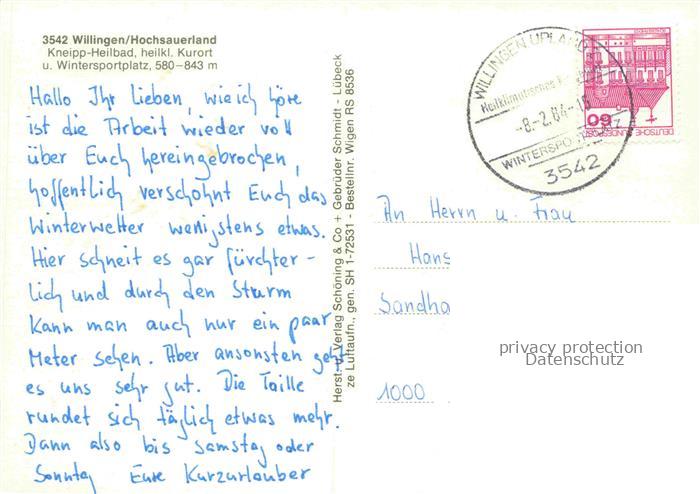 3542 Willingen/Hochsauerland
Kneipp-Heilbad, heilkl. Kurort
u. Wintersportplatz, 580–843 m
Hallo Ihr Lieben, wie ich höre
ist die Arbeit wieder voll
über Euch hereingebrochen,
hoffentlich verschohnt Euch das
Winterwetter wenigstens etwas.
Hier schneit es gar fürchter-
lich und durch den Sturm
kann man auch nur ein paar
Meter sehen. Aber ansonsten geht
es uns sehr gut. Die Taille
rundet sich täglich etwas mehr.
Dann also bis Samstag oder
Sonntag Eure Kurzurlauber
Herst. u. Verlag Schöning & Co + Gebrüder Schmidt - Lübeck
ze Luftaufn., gen. SH 1-72531 - Bestellnr. Wigen RS 8536
WILLINGEN UPLAND
Heilklimatischer
-8.-2.84-18
WINTERSPO
3542
60
DEUTSCHE BUNDESPOST
An Herrn u. Frau
Hans
Sandha
1000
privacy protection
Datenschutz